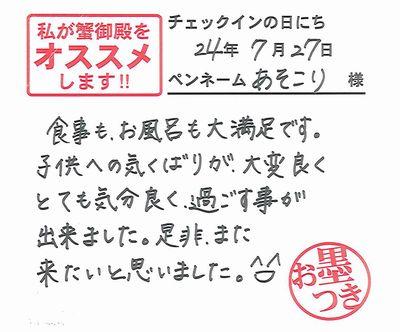 私が蟹御殿を
オススメ
します!!
チェックインの日にち
24年 7月27日
ペンネーム あそこり 様
食事も、お風呂も大満足です。
子供への気くばりが、大変良く
とても気分良く、過ごす事が
出来ました。是非、また
来たいと思いました。^^
お墨つき